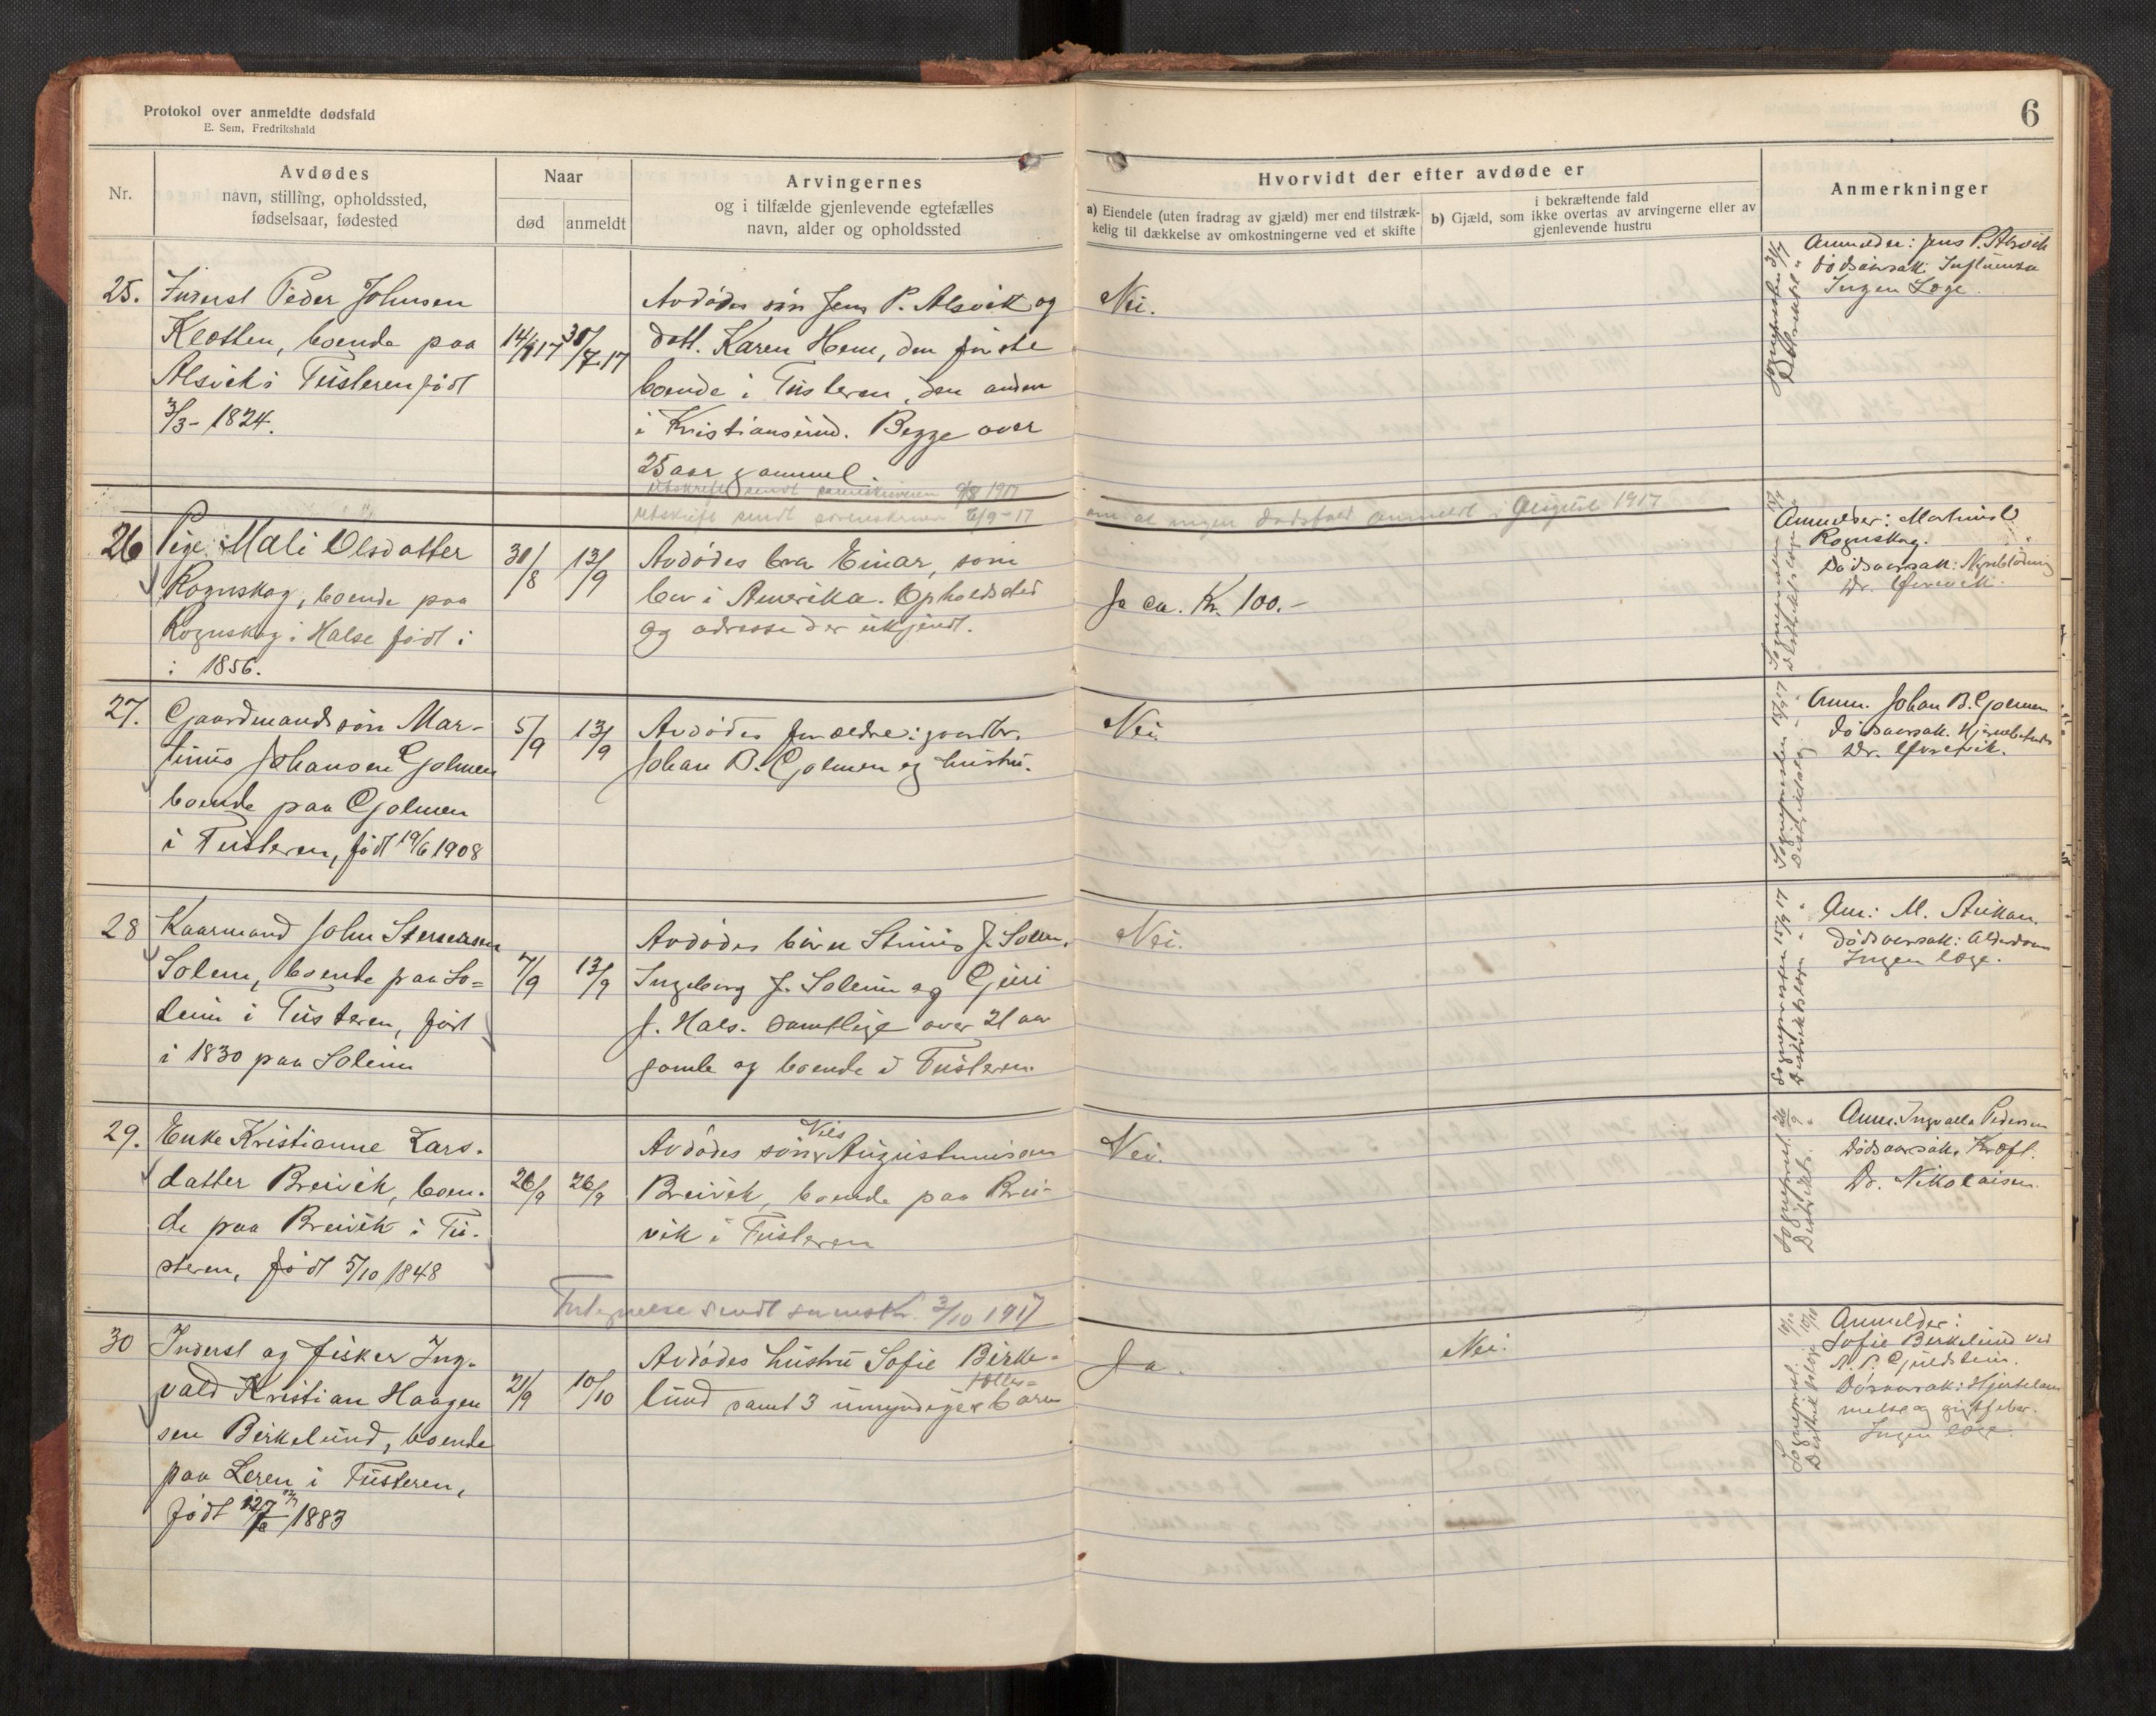 Protokol over anmeldte dødsfald
E. Sem, Fredrikshald
6
Nr.
Avdødes
navn, stilling, opholdssted,
fødselsaar, fødested
Naar
død
anmeldt
Arvingernes
og i tilfælde gjenlevende egtefælles
navn, alder og opholdssted
Hvorvidt der efter avdøde er
a) Eiendele (uten fradrag av gjæld) mer end tilstræk-
kelig til dækkelse av omkostningerne ved et skifte
i bekræftende fald
b) Gjæld, som ikke overtas av arvingerne eller av
gjenlevende hustru
Anmerkninger
25. Inderst Peder Johnsen
Kletten, boende paa
Alsvik i Tusteren født
3/3-1824.
14/7 17
30/7-17
Avdødes søn Jens P. Alsvik og
datt. Karen Hem, den første
boende i Tusteren, den anden
i Kristiansund. Begge over
25 aar gammel.
Utskrift sendt sorenskriveren 9/8 1917
Nei.
Anmelder: Jens P. Alsvik
Dødsaarsak: Influensa
Ingen Læge.
Utskrift sendt sorenskriver 6/9-17
om at ingen dødsfald anmeldt i August 1917
26 Pige Mali Olsdatter
Rognskog, boende paa
Rognskog i Halse født i
i 1856.
30/8
13/9
Avdødes bror Einar, som
bor i Amerika. Opholdssted
og adresse der ukjendt.
Ja ca. Kr. 100.-
Anmelder: Martinus O.
Rognskog.
Dødsaarsak:
Dr.
Sognepresten
27. Gaardmandssøn Mar-
tinus Johansen Golmen
boende paa Golmen
i Tusteren, født 19/6 1908
5/9
13/9
Avdødes forældre: gaardbr.
Johan B. Golmen og hustru.
Nei.
Anm. Johan B. Golmen
Dødsaarsak.
Dr.
Sognepresten
28 Kaarmand John
Solem, boende paa So-
leim i Tusteren, født
i 1830 paa Soleim
7/9
13/9
Avdødes børn J. Solem,
Ingeborg J. Soleim og Guri
J. Hals. Samtlige over 21 aar
gamle og boende i Tusteren.
Nei.
Anm: M.
Dødsaarsak: Alderdom
Ingen læge.
Sognepresten 15/9 17
29. Enke Kristianne Lars-
datter Breivik, boen-
de paa Breivik i Tu-
steren, født 5/10 1848
26/9
26/9
Nils
Avdødes søn Augustinusson
Breivik, boende paa Brei-
vik i Tusteren
Nei.
Anm. Pedersen
Dødsaarsak. Kræft.
Dr. Nikolaisen.
sendt sorenskr. 3/10 1917
30 Inderst og fisker Ing-
vald Kristian Haagen
sen Birkelund, boende
paa Leren i Tusteren,
født 1883
21/9
10/10
Avdødes hustru Sofie Birke-
fælles-
lund samt 3 umyndige børn
Ja.
Nei.
Anmelder:
Sofie Birkelund ved
Dødsaarsak: Hjertelam
melse og giktfeber.
Ingen læge.